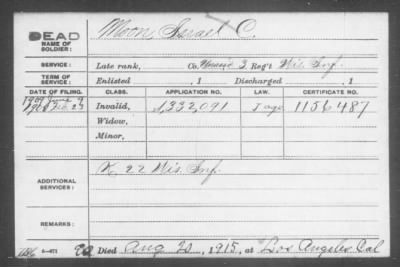 DEAD
NAME OF SOLDIER:
Moon, Israel C.
SERVICE:
Late rank, Co. 3 Reg't Wis. Inf.
TERM OF SERVICE:
Enlisted , 1 Discharged , 1
DATE OF FILING. CLASS. APPLICATION NO. LAW. CERTIFICATE NO.
1904 June 9 Invalid, 1,332,091 J age 1156487
Widow,
Minor,
ADDITIONAL SERVICES:
K, 22 Wis. Inf.
REMARKS:
6—071 Died Aug 20, 1915, at Los Angeles Cal